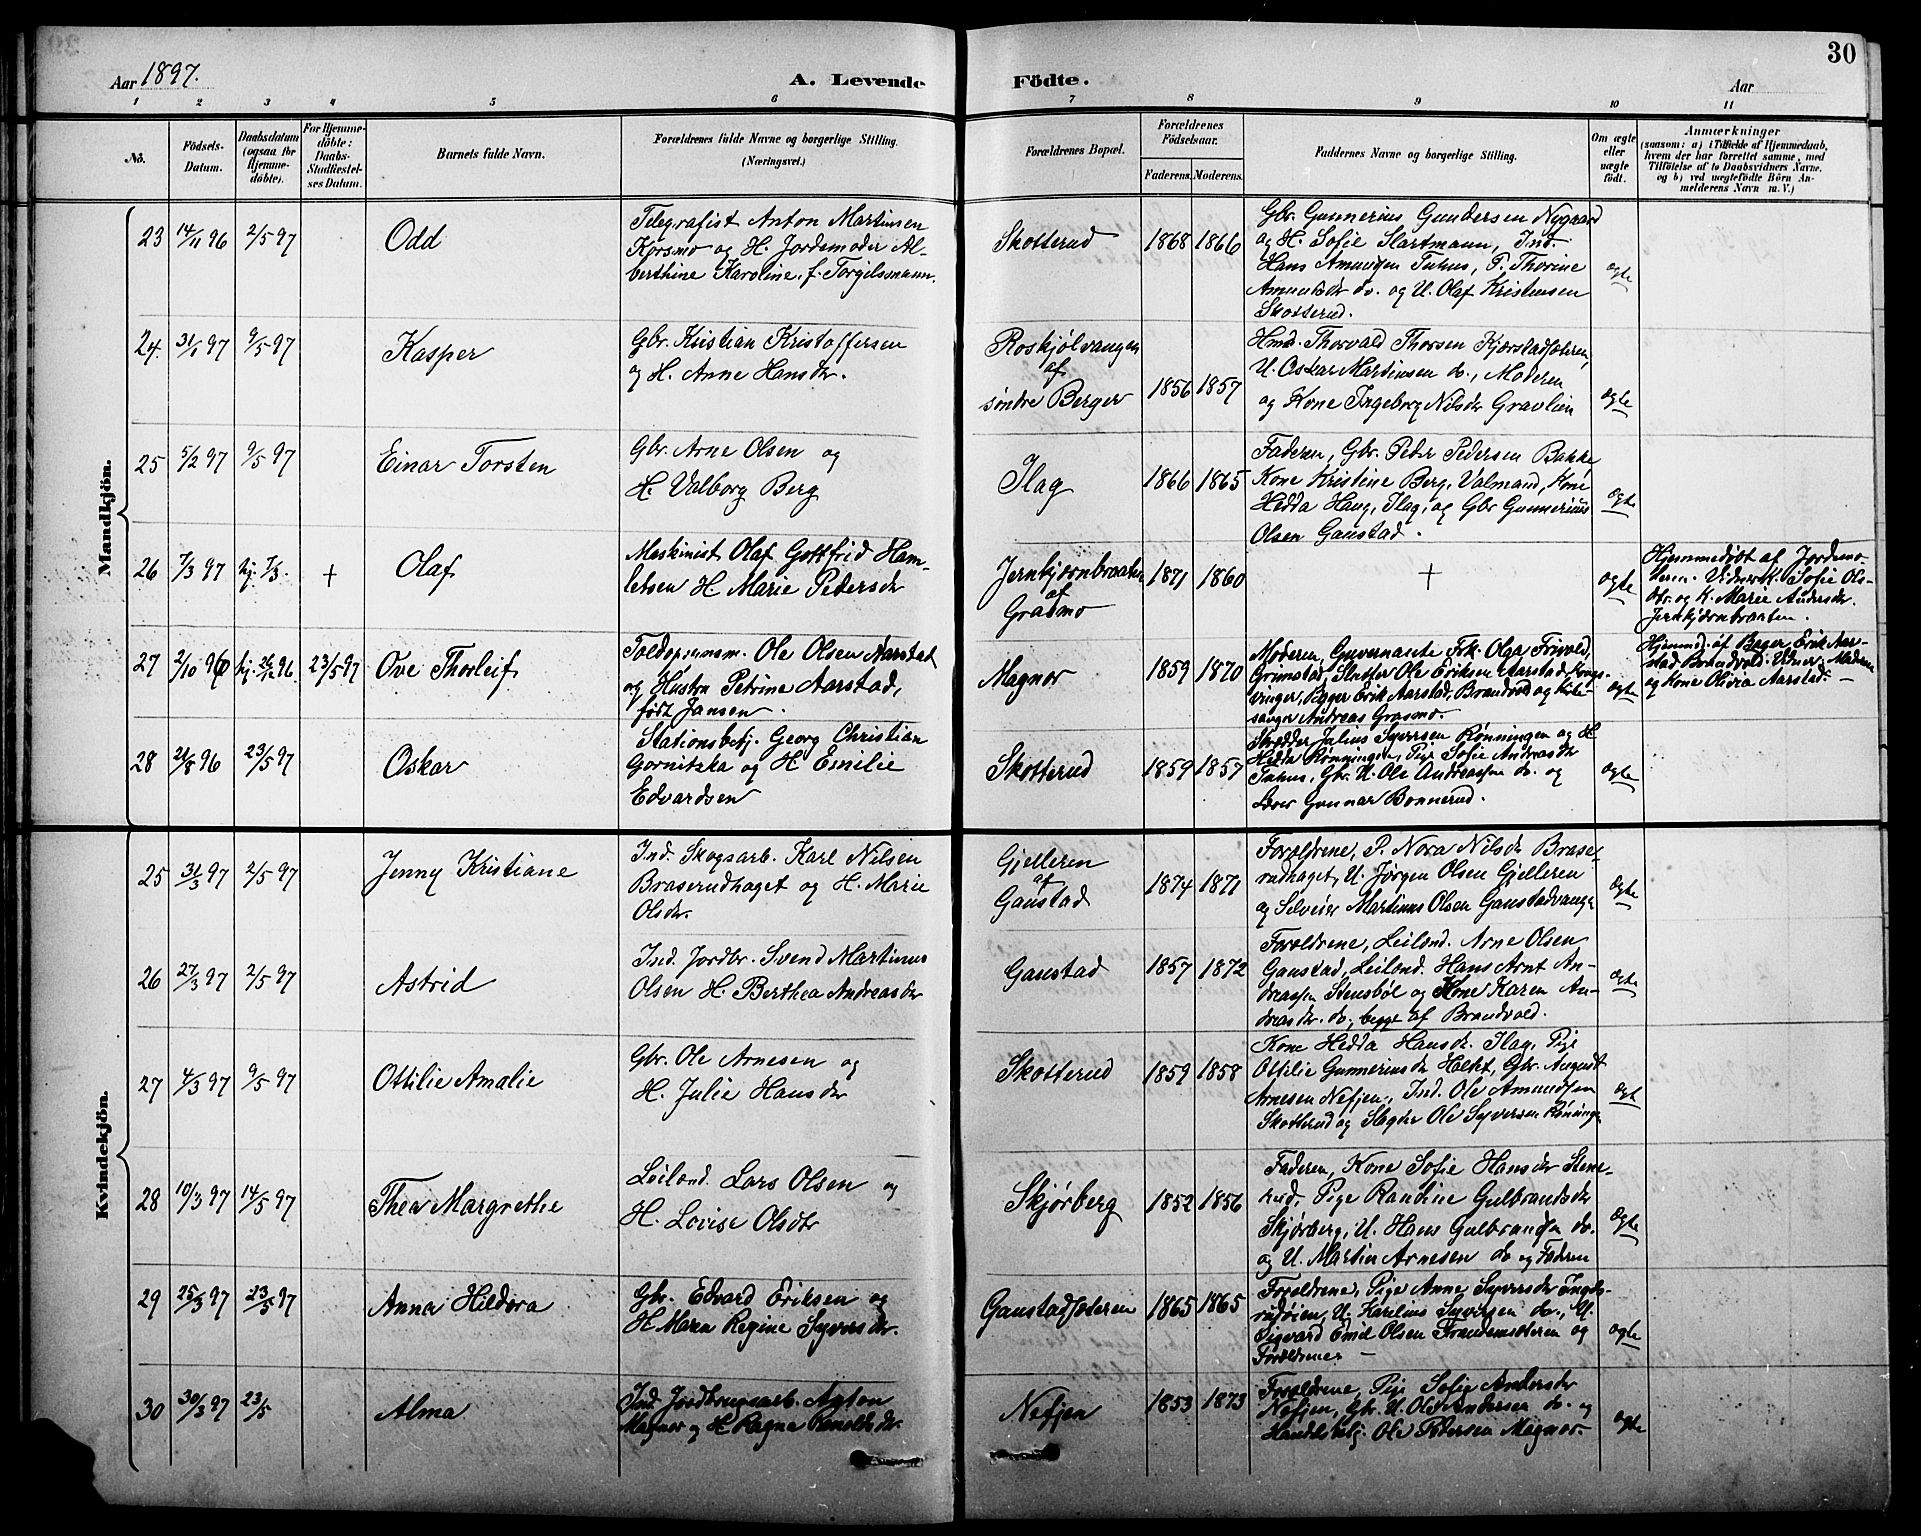 30
Aar 1897.
A. Levende Födte.
Aar
1 2 3 4 5 6 7 8 9 10 11
No.
Födsels-Datum.
Daabsdatum (ogsaa for Hjemme-döbte).
For Hjemme-döbte: Daabs-Stadfæstel-ses Datum.
Barnets fulde Navn.
Forældrenes fulde Navne og borgerlige Stilling.
(Næringsvei.)
Forældrenes Bopæl.
Forældrenes Födselsaar.
Faderens. Moderens.
Faddernes Navne og borgerlige Stilling.
Om ægte eller uægte födt.
Anmærkninger
(saasom: a) i Tilfælde af Hjemmedaab,
hvem der har forrettet samme, med
Tilföielse af to Daabsvidners Navne,
og b) ved uægtefödte Börn An-
melderens Navn m. V.)
Mandkjön.
23 14/11 96 2/5 97 Odd
Telegrafist Anton Martinsen
Korsmo og H. Jordemoder Al-
berthine Karoline, f. Torgilsmann.
Skotterud 1868 1866
Gbr. Gunnerius Gundersen Nygaard
og H. Sofie Slartmann, Ind.
Hans Amundsen Tuhus, P. Thorine
Amundsdr do. og U. Olaf Kristensen
Skotterud.
ægte
24. 31/1 97 9/5 97 Kasper
Gbr. Kristian Kristoffersen
og H. Anne Hansdr.
Roskjølvangen
af
søndre Berger
1856 1857
Hmd. Thorvald Thorsen Kjærstadsæteren,
U. Oskar Martinsen do., Moderen
og Kone Ingeborg Nilsdr Gravlien
ægte
25 5/2 97 9/5 97 Einar Torsten
Gbr. Arne Olsen og
H. Valborg Berg
Ilag 1866 1865
Faderen, Gbr. Peder Pedersen Bakke
Kone Kristine Berg, Valmand, Kone
Hedda Haug, Ilag, og Gbr Gunnerius
Olsen Gaustad.
ægte
26 7/3 97 hj. 7/3. + Olaf
Maskinist Olaf Gottfrid Ham-
letsen H Marie Pedersdr
Jernbjørnbraaten
af
Grasmo
1871 1860 + ægte
Hjemmedøbt af Jordemo-
deren. Vidner K. Sofie Ols-
dtr. og K. Marie Andersdr.
Jernbjørnbraaten.
27 2/10 96 hj. 26/12 96. 23/5 97 Ove Thorleif
Toldopsynsm. Ole Olsen Aarstad
og Hustru Petrine Aarstad,
født Jansen.
Magnor 1859 1870
Moderen, Guvernante Frk. Olga Frivold,
Grimstad, Slutter Ole Eriksen Aarstad, Kongs-
vinger, Bager Erik Aarstad, Brandvold og Kirke-
sanger Andreas Grasmo.
ægte
Hjemmed. af Bager Erik Aar-
stad Brandvold. Vidner: Moderen
og Kone Olivia Aarstad.
28 21/8 96 23/5 97 Oskar
Stationsbetj. Georg Christian
Gornitzka og H Emilie
Edvardsen
Skotterud 1859 1857
Skrædder Julius Syversen Rønningen og H
Hedda Rønningen, Pige Sofie Andreasdr
Tuhus, Gbr. U. Ole Andreassen do. og
Lærer Gunnar Bonnerud.
ægte
Kvindekjön.
25 31/3 97 2/5 97 Jenny Kristiane
Ind. Skogsarb. Karl Nilsen
Braserudhaget og H. Marie
Olsdr.
Gjelleren
af
Gaustad
1874 1871
Forældrene, P. Nora Nilsdr Brase-
rudhaget, U. Jørgen Olsen Gjelleren
og Selveier Martinus Olsen Gaustadvangen
ægte
26 27/3 97 2/5 97 Astrid
Ind. Jordbr. Svend Martinus
Olsen H. Berthea Andreasdr
Gaustad 1857 1872
Forældrene, Leilænd. Arne Olsen
Gaustad, Leilænd. Hans Arnt An-
dreassen Stensbøl og Kone Karen An-
dreasdr. do., begge af Brandvold.
ægte
27 4/3 97 9/5 97 Ottilie Amalie
Gbr. Ole Arnesen og
H. Julie Hansdr
Skotterud 1859 1858
Kone Hedda Hansdr. Ilag, Pige
Ottilie Gunneriusdr Holtet, Gbr. August
Arnesen Nefjen, Ind. Ole Amundsen
Skotterud og Slagter Ole Syversen Rønningen
ægte
28 10/3 97 14/5 97 Thea Margrethe
Leilænd. Lars Olsen og
H. Lovise Olsdtr
Skjørberg 1852 1856
Faderen, Kone Sofie Hansdr Stene-
rud, Pige Randine Gulbrandsdr
Skjørberg, U. Hans Gulbrandsen do.
og U. Martin Arnesen do og Faderen
ægte
29 25/3 97 23/5 97 Anna Hildora
Gbr. Edvard Eriksen og
H Maren Regine Syversdr.
Gaustadsæteren 1865 1865
Forældrene, Pige Anne Syversdr Engels-
rudøien, U. Karelius Syversen do., U.
Sigvard Emil Olsen og
Forældrene
ægte
30 30/3 97 23/5 Alma
Ind. Jordbrugsarb. Anton
Magnor og H Ragna
Nefjen 1853 1873
Forældrene, Pige Sofie Andersdr
Nefjen, Gbr. U. Ole Andersen do. og
Handelsbetj. Ole Pedersen Magnor
ægte